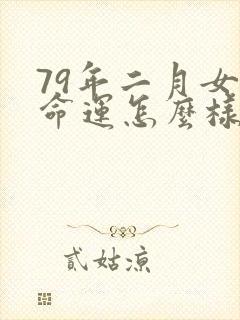 79年二月女
命運怎麼樣
貳姑涼